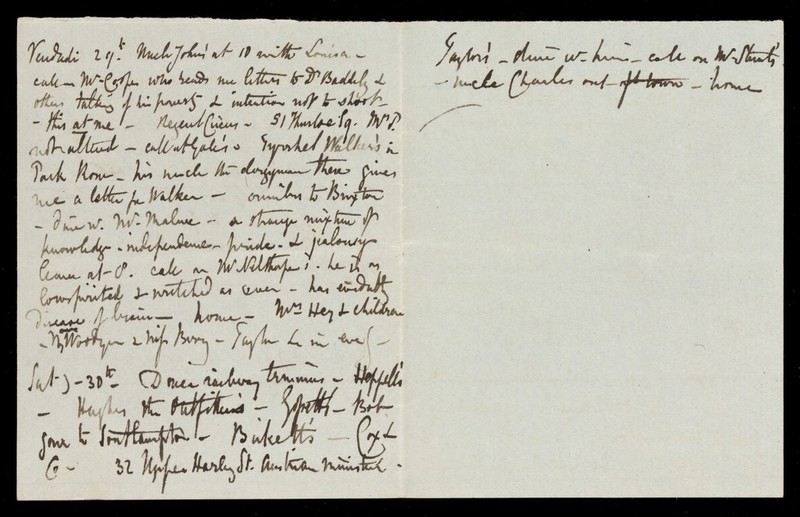 Vendredi 29th. Uncle John's at 10 with Louisa -
call on Mr. Cooper who reads me letters to Dr Baddely &
others talking of his poverty & intention not to shoot
- this at me - Regent Circus - 51 Thurloe Sq. Mr P.
not altered - call at Gale's - Walker's in
Park Row - his uncle the clergyman there gives
me a letter for Walker - omnibus to Brixton
- dine w. Mr. Malme - a strange mixture of
knowledge - independence - pride - & jealousy
leave at 8. call on Mr Nelthorpe's. he is as
lowspirited & wretched as ever - has evidently
disease of brain - home - Mrs Hey & children
- Woodyer & Miss Berry - Taylor in eveg -
Sat) - 30th - Dover railway terminus - Hoppell's
- Hughes the outfitters - - Bob
gone to Southampton - Birkett's - Cox &
Co - 32 Upper Harley St. Austrian minister -
Taylor's - dine w. him - call on Mr Sturt's
- uncle Charles out of town - home